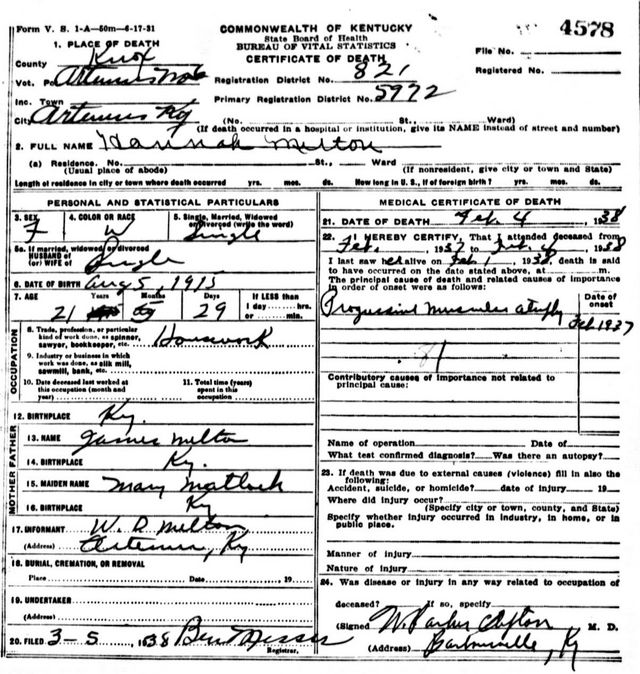 Form V. S. 1-A—50m—6-17-31
COMMONWEALTH OF KENTUCKY
State Board of Health
BUREAU OF VITAL STATISTICS
CERTIFICATE OF DEATH
4578
File No.
Registered No.
1. PLACE OF DEATH
County Knox
Vot. Pct Artemus No
Inc. Town
City Artemus Ky
Registration District No. 821
Primary Registration District No. 5972
(No. St., Ward)
(If death occurred in a hospital or institution, give its NAME instead of street and number)
2. FULL NAME Hannah Melton
(a) Residence. No. St., Ward
(Usual place of abode) (If nonresident, give city or town and State)
Length of residence in city or town where death occurred yrs. mos. ds. How long in U. S., if of foreign birth? yrs. mos. ds.
PERSONAL AND STATISTICAL PARTICULARS
3. SEX 4. COLOR OR RACE 5. Single, Married, Widowed
or Divorced (write the word)
F W Single
5a. If married, widowed or divorced
HUSBAND of
(or) WIFE of Single
6. DATE OF BIRTH Aug 5, 1915
7. AGE Years Months Days If LESS than
1 day hrs.
or min.
21 5 29
OCCUPATION
8. Trade, profession, or particular
kind of work done, as spinner,
sawyer, bookkeeper, etc. Housework
9. Industry or business in which
work was done, as silk mill,
sawmill, bank, etc.
10. Date deceased last worked at
this occupation (month and
year)
11. Total time (years)
spent in this
occupation
12. BIRTHPLACE Ky.
FATHER
13. NAME James Melton
14. BIRTHPLACE Ky.
MOTHER
15. MAIDEN NAME Mary Matlock
16. BIRTHPLACE Ky
17. INFORMANT W. D. Melton
(Address) Artemus, Ky
18. BURIAL, CREMATION, OR REMOVAL
Place Date , 19
19. UNDERTAKER
(Address)
20. FILED 3-5, 1938 Ben Messer
Registrar.
MEDICAL CERTIFICATE OF DEATH
21. DATE OF DEATH Feb. 4, 1938
22. I HEREBY CERTIFY, That I attended deceased from
Feb. , 1937 to Feb. 4, 1938
I last saw her alive on Feb 1, 1938, death is said
to have occurred on the date stated above, at m.
The principal cause of death and related causes of importance
in order of onset were as follows:
Date of
onset
Progressive muscular atrophy Feb 1937
81
Contributory causes of importance not related to
principal cause:
Name of operation Date of
What test confirmed diagnosis? Was there an autopsy?
23. If death was due to external causes (violence) fill in also the
following:
Accident, suicide, or homicide? date of injury 19
Where did injury occur?
(Specify city or town, county, and State)
Specify whether injury occurred in industry, in home, or in
public place.
Manner of injury
Nature of injury
24. Was disease or injury in any way related to occupation of
deceased? If so, specify
(Signed W. Parker Clifton, M. D.
(Address) Barbourville, Ky